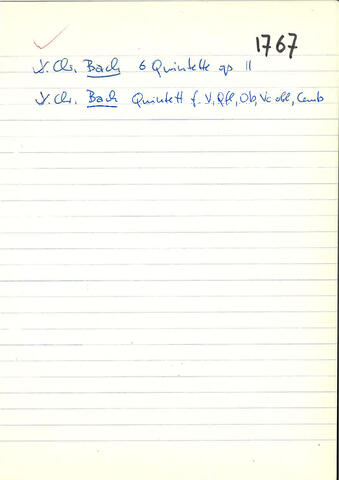 1767
J. Chr. Bach 6 Quintette op 11
J. Chr. Bach Quintett f. V, Qfl, Ob, Vc obl, Cemb